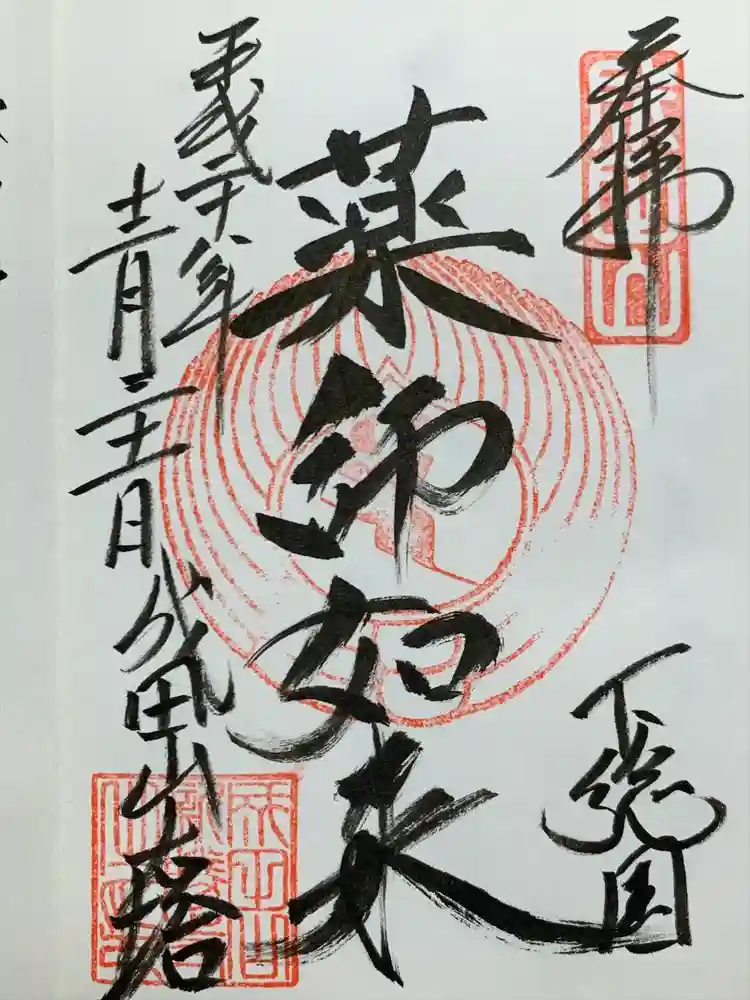 奉拝
下総国
薬師如来
平成二十八年
十二月二十三日
成田山大塔